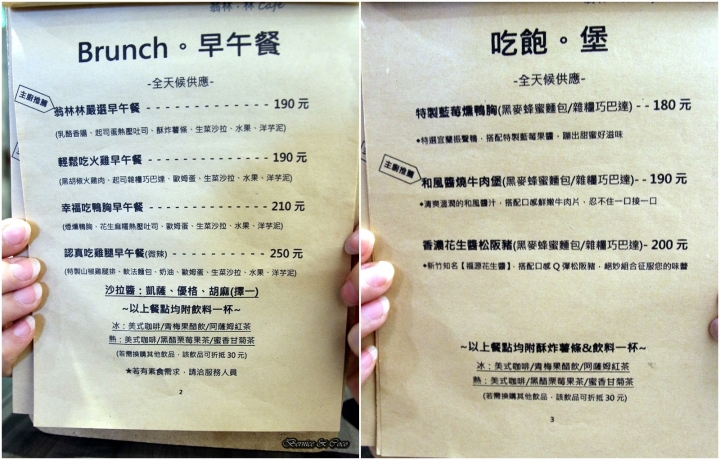 翁林．林 Cafe
Brunch。早午餐
-全天候供應-
主廚推薦
翁林林嚴選早午餐 - - - - - - - - - - - - - - 190 元
(乳酪香腸、起司蛋熱壓吐司、酥炸薯條、生菜沙拉、水果、洋芋泥)
輕鬆吃火雞早午餐 - - - - - - - - - - - - - - 190 元
(黑胡椒火雞肉、起司雜糧巧巴達、歐姆蛋、生菜沙拉、水果、洋芋泥)
幸福吃鴨胸早午餐 - - - - - - - - - - - - - - 210 元
(煙燻鴨胸、花生麻糬熱壓吐司、歐姆蛋、生菜沙拉、水果、洋芋泥)
認真吃雞腿早午餐(微辣) - - - - - - - - - - - 250 元
(特製山椒雞腿排、軟法麵包、奶油、歐姆蛋、生菜沙拉、水果、洋芋泥)
沙拉醬：凱薩、優格、胡麻(擇一)
~以上餐點均附飲料一杯~
冰：美式咖啡/青梅果醋飲/阿薩姆紅茶
熱：美式咖啡/黑醋栗莓果茶/蜜香甘菊茶
(若需換購其他飲品，該飲品可折抵 30 元)
★若有素食需求，請洽服務人員
2
Bernice & Coco
吃飽。堡
-全天候供應-
特製藍莓燻鴨胸(黑麥蜂蜜麵包/雜糧巧巴達)- - 180 元
◆特選宜蘭振聲鴨，搭配特製藍莓果醬，蹦出甜蜜好滋味
主廚推薦
和風醬燒牛肉堡(黑麥蜂蜜麵包/雜糧巧巴達)- - 190 元
◆清爽溫潤的和風醬汁，搭配口感鮮嫩牛肉片，忍不住一口接一口
香濃花生醬松阪豬(黑麥蜂蜜麵包/雜糧巧巴達)- 200 元
◆新竹知名【福源花生醬】，搭配口感 Q 彈松阪豬，絕妙組合征服您的味蕾
~以上餐點均附酥炸薯條&飲料一杯~
冰：美式咖啡/青梅果醋飲/阿薩姆紅茶
熱：美式咖啡/黑醋栗莓果茶/蜜香甘菊茶
(若需換購其他飲品，該飲品可折抵 30 元)
3